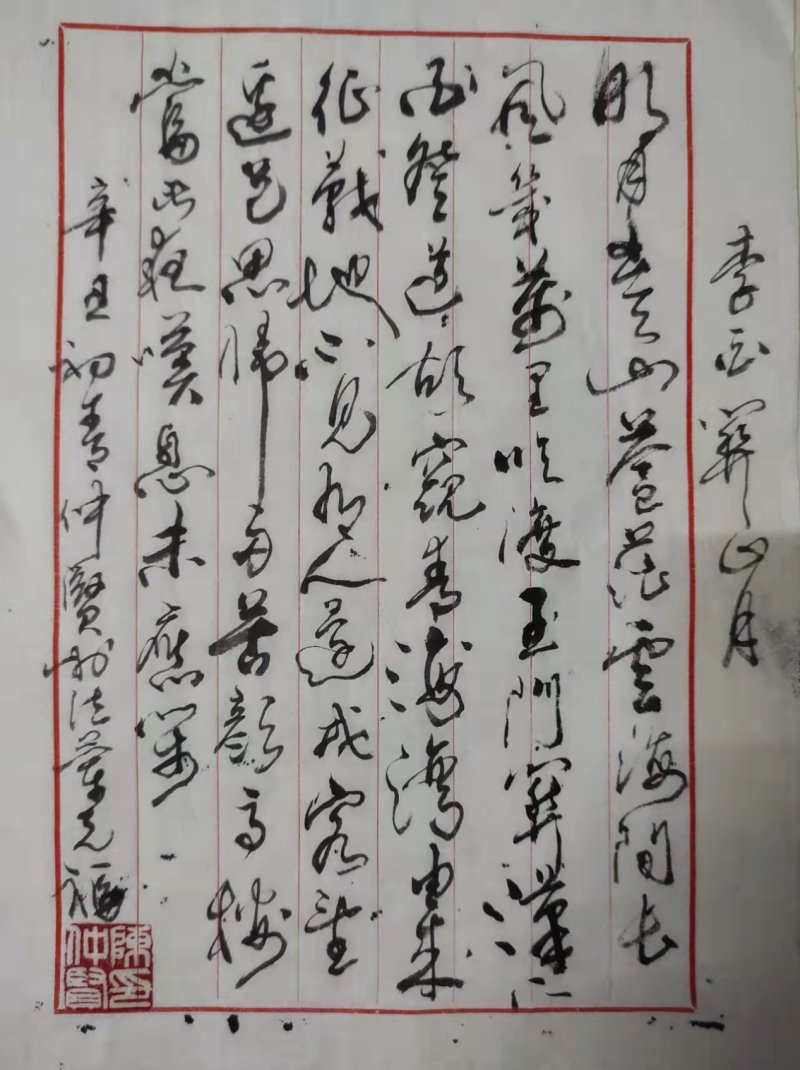 李白關山月
明月出天山蒼茫雲海間長
風幾萬里吹渡玉門關漢下
白登道胡窺青海灣由來
征戰地不見有人還戍客望
邊邑思歸多苦顏高樓
當此夜嘆息未應閑
辛丑初仲賢於法蘭克福
陳印仲賢